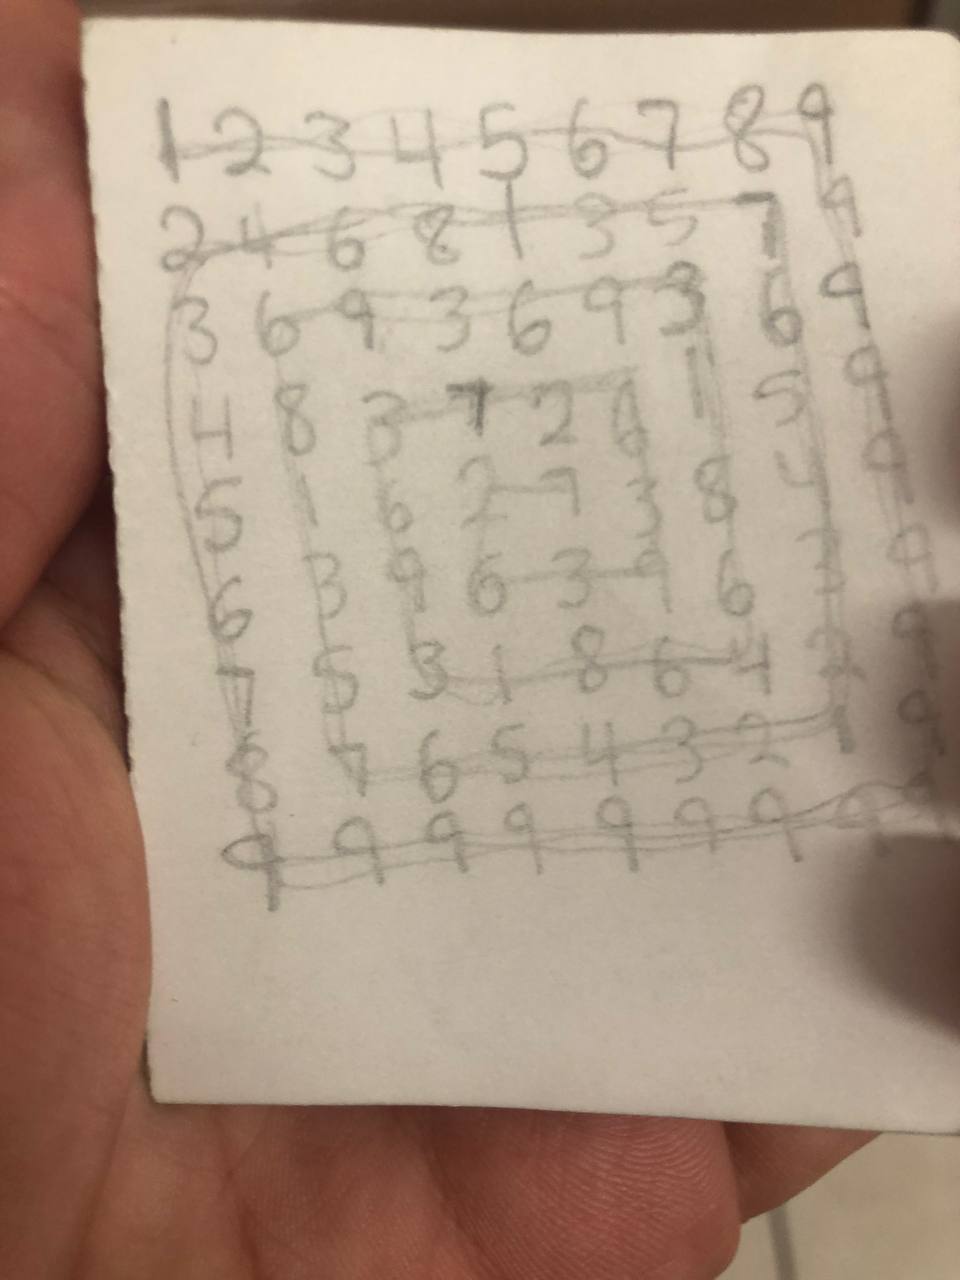 1 2 3 4 5 6 7 8 9
2 4 6 8 1 3 5 7 9
3 6 9 3 6 9 3 6 9
4 8 3 7 2 6 1 5 9
5 1 6 2 7 3 8 4 9
6 3 9 6 3 9 6 3 9
7 5 3 1 8 6 4 2 9
8 7 6 5 4 3 2 1 9
9 9 9 9 9 9 9 9 9